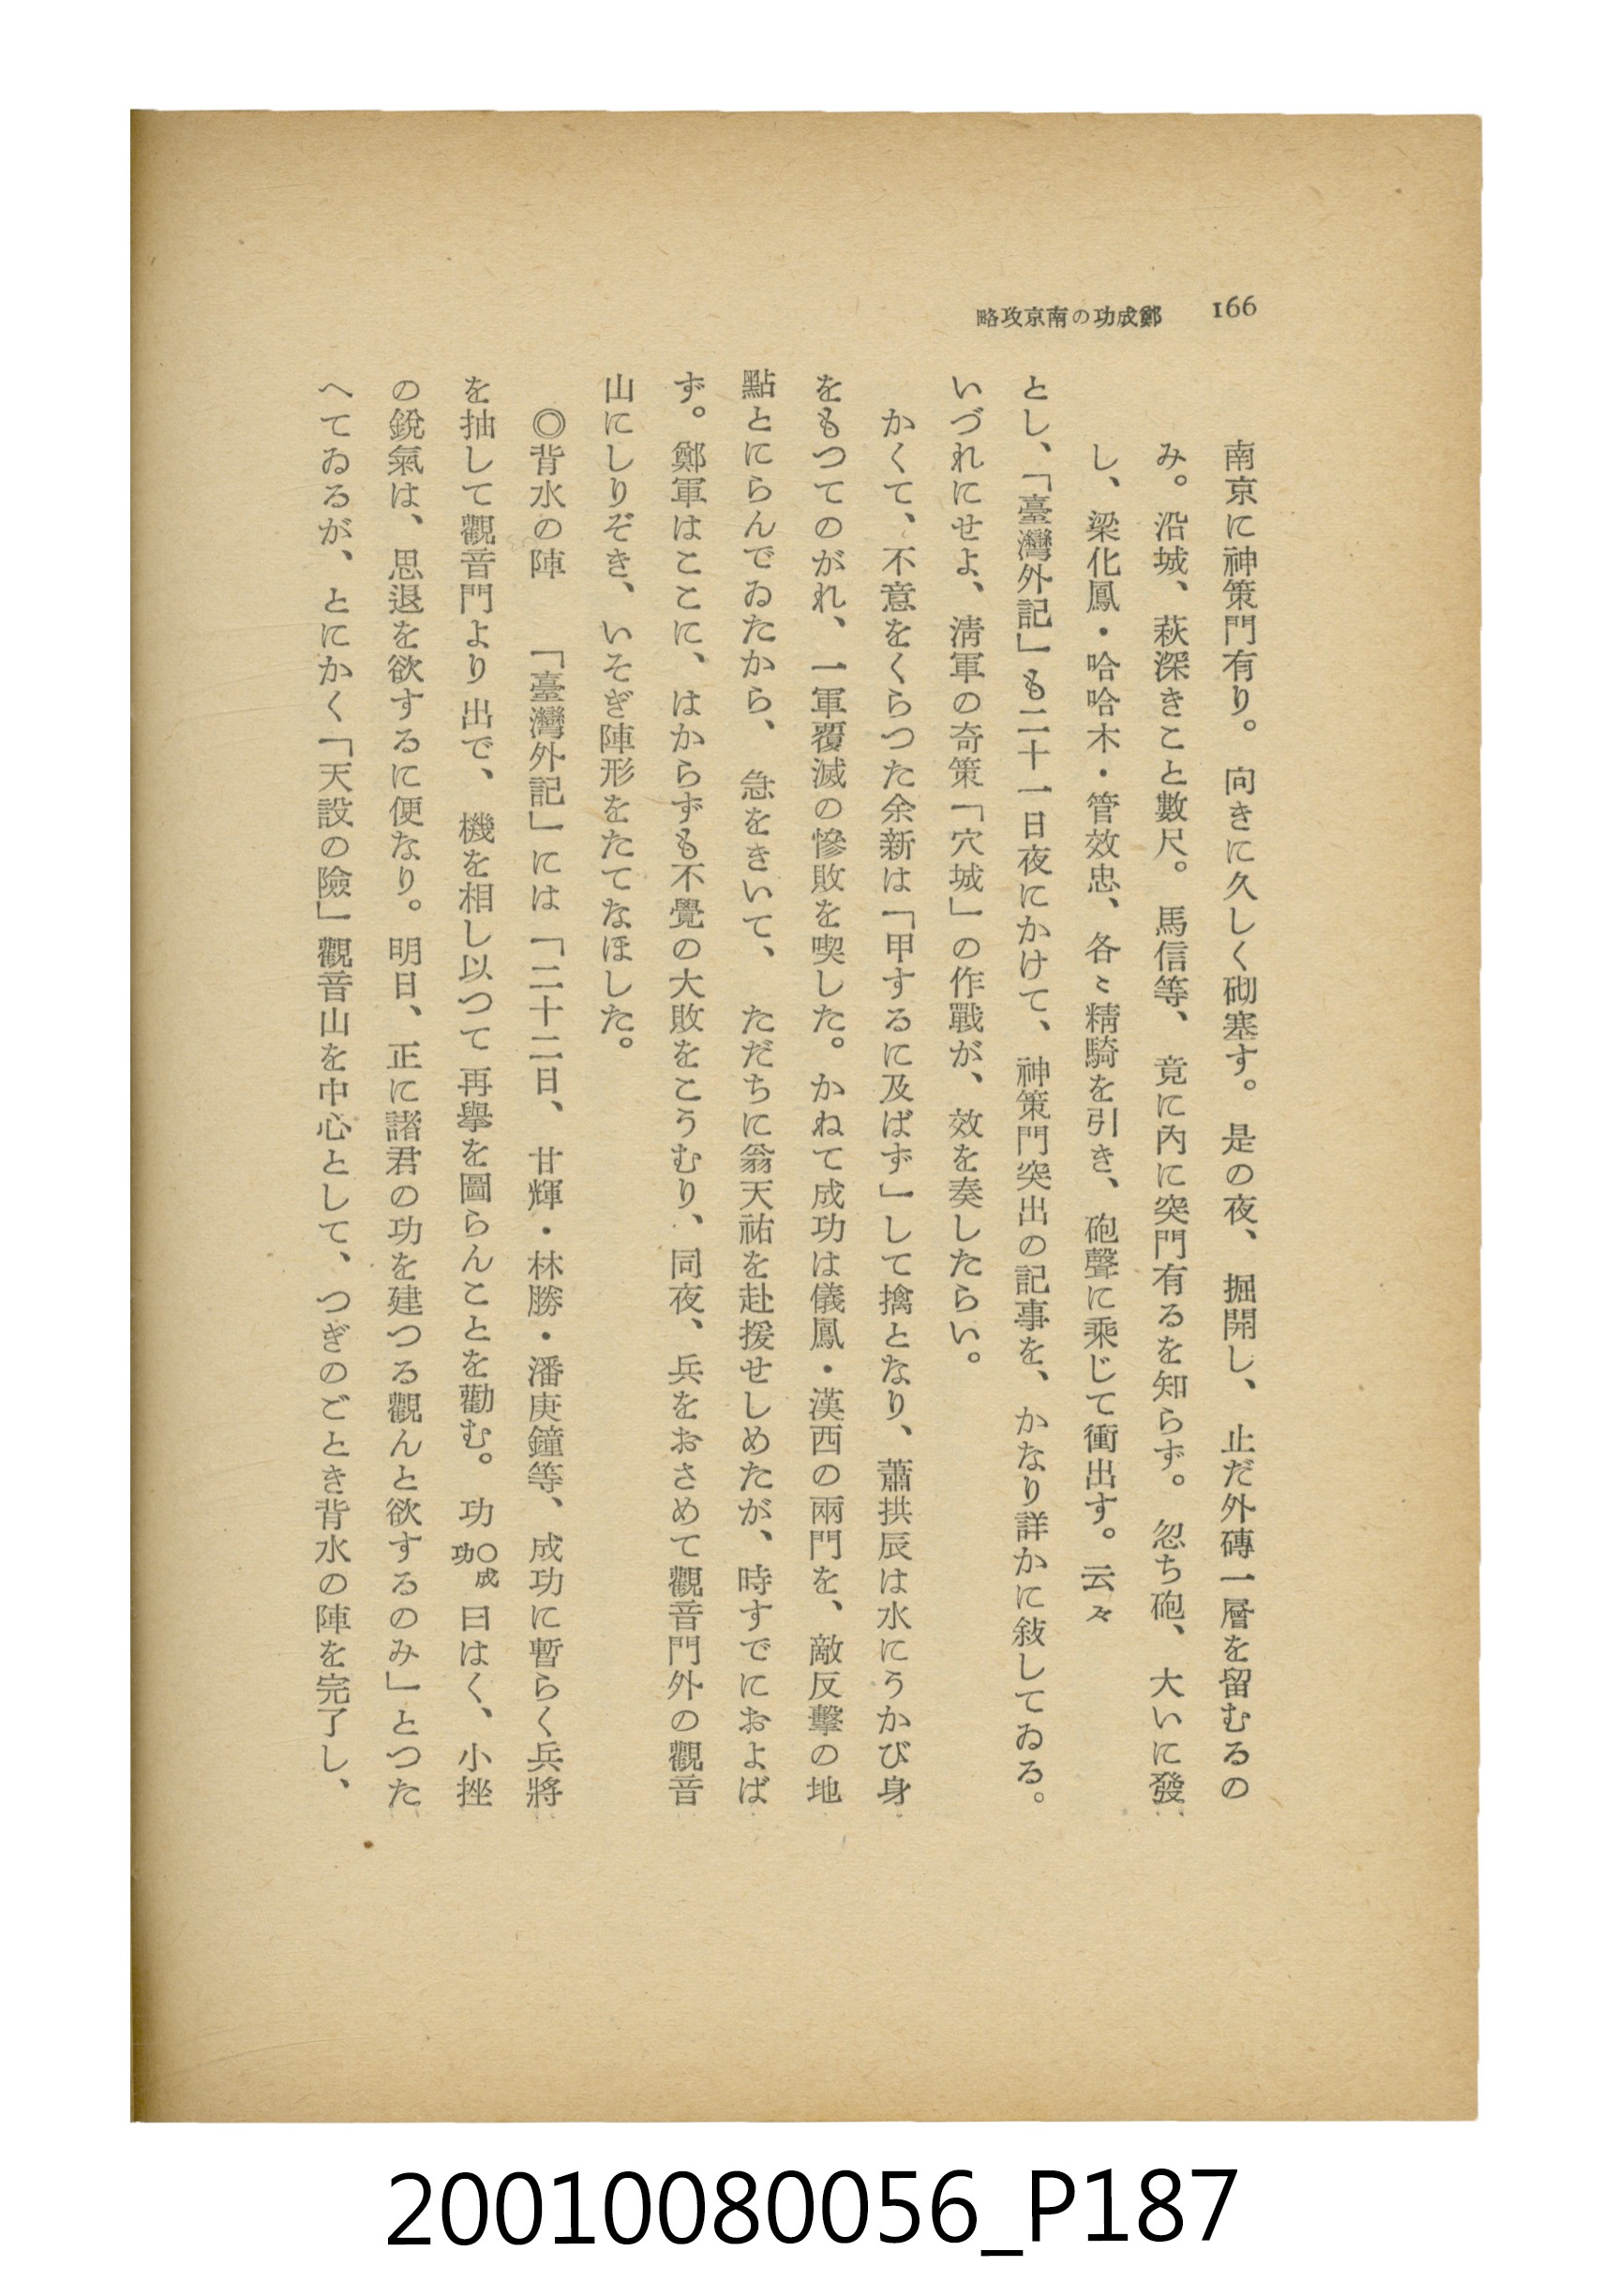 166
鄭成功の南京攻略
南京に神策門有り。向きに久しく砌塞す。是の夜、掘開し、止だ外磚一層を留むるの
み。沿城、萩深きこと數尺。馬信等、竟に內に突門有るを知らず。忽ち砲、大いに發
し、梁化鳳・哈哈木・管效忠、各〻精騎を引き、砲聲に乘じて衝出す。云々
とし、「臺灣外記」も二十一日夜にかけて、神策門突出の記事を、かなり詳かに敍してゐる。
いづれにせよ、淸軍の奇策「穴城」の作戰が、效を奏したらい。
かくて、不意をくらつた余新は「甲するに及ばず」して擒となり、蕭拱辰は水にうかび身
をもつてのがれ、一軍覆滅の慘敗を喫した。かねて成功は儀鳳・漢西の兩門を、敵反擊の地
點とにらんでゐたから、急をきいて、ただちに翁天祐を赴援せしめたが、時すでにおよば
ず。鄭軍はここに、はからずも不覺の大敗をこうむり、同夜、兵をおさめて觀音門外の觀音
山にしりぞき、いそぎ陣形をたてなほした。
◎背水の陣　「臺灣外記」には「二十二日、甘輝・林勝・潘庚鐘等、成功に暫らく兵將
を抽して觀音門より出で、機を相し以つて再擧を圖らんことを勸む。功〇成功曰はく、小挫
の銳氣は、思退を欲するに便なり。明日、正に諸君の功を建つる觀んと欲するのみ」とつた
へてゐるが、とにかく「天設の險」觀音山を中心として、つぎのごとき背水の陣を完了し、
20010080056_P187